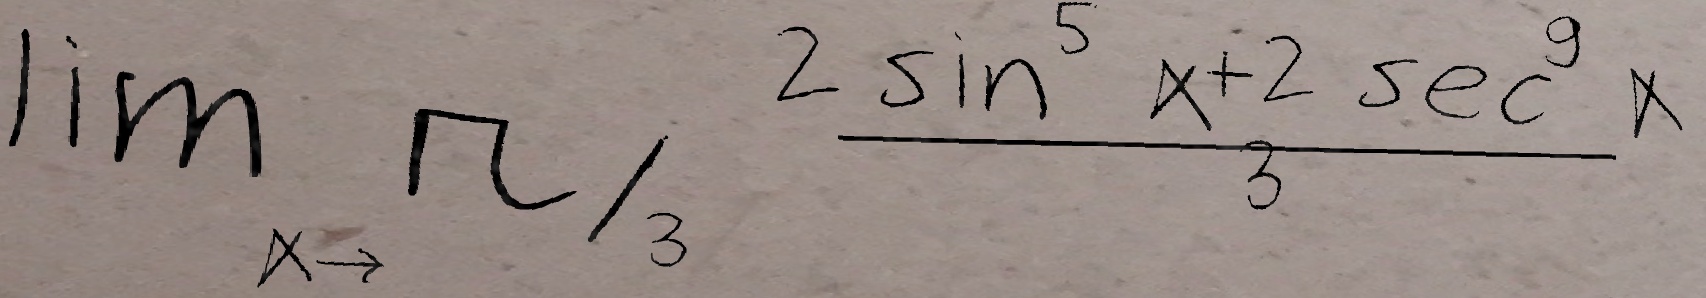 lim x→ π/3 (2 sin^5 x+2 sec^9 x)/3